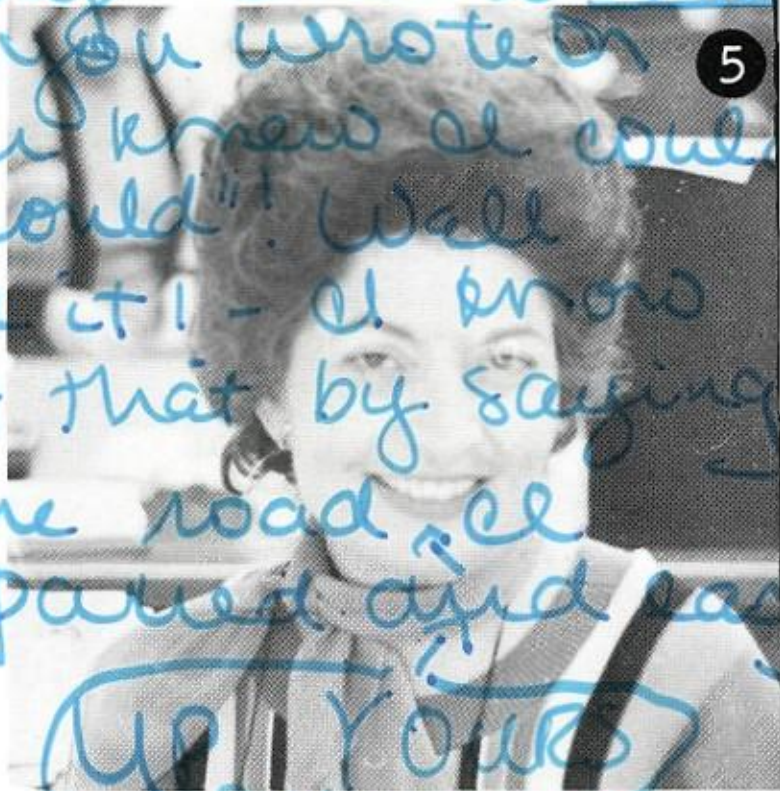 you wrote on
5
knew I coul
ould"! Well
it! - I know
that by saying
road I
and
UP YOURS